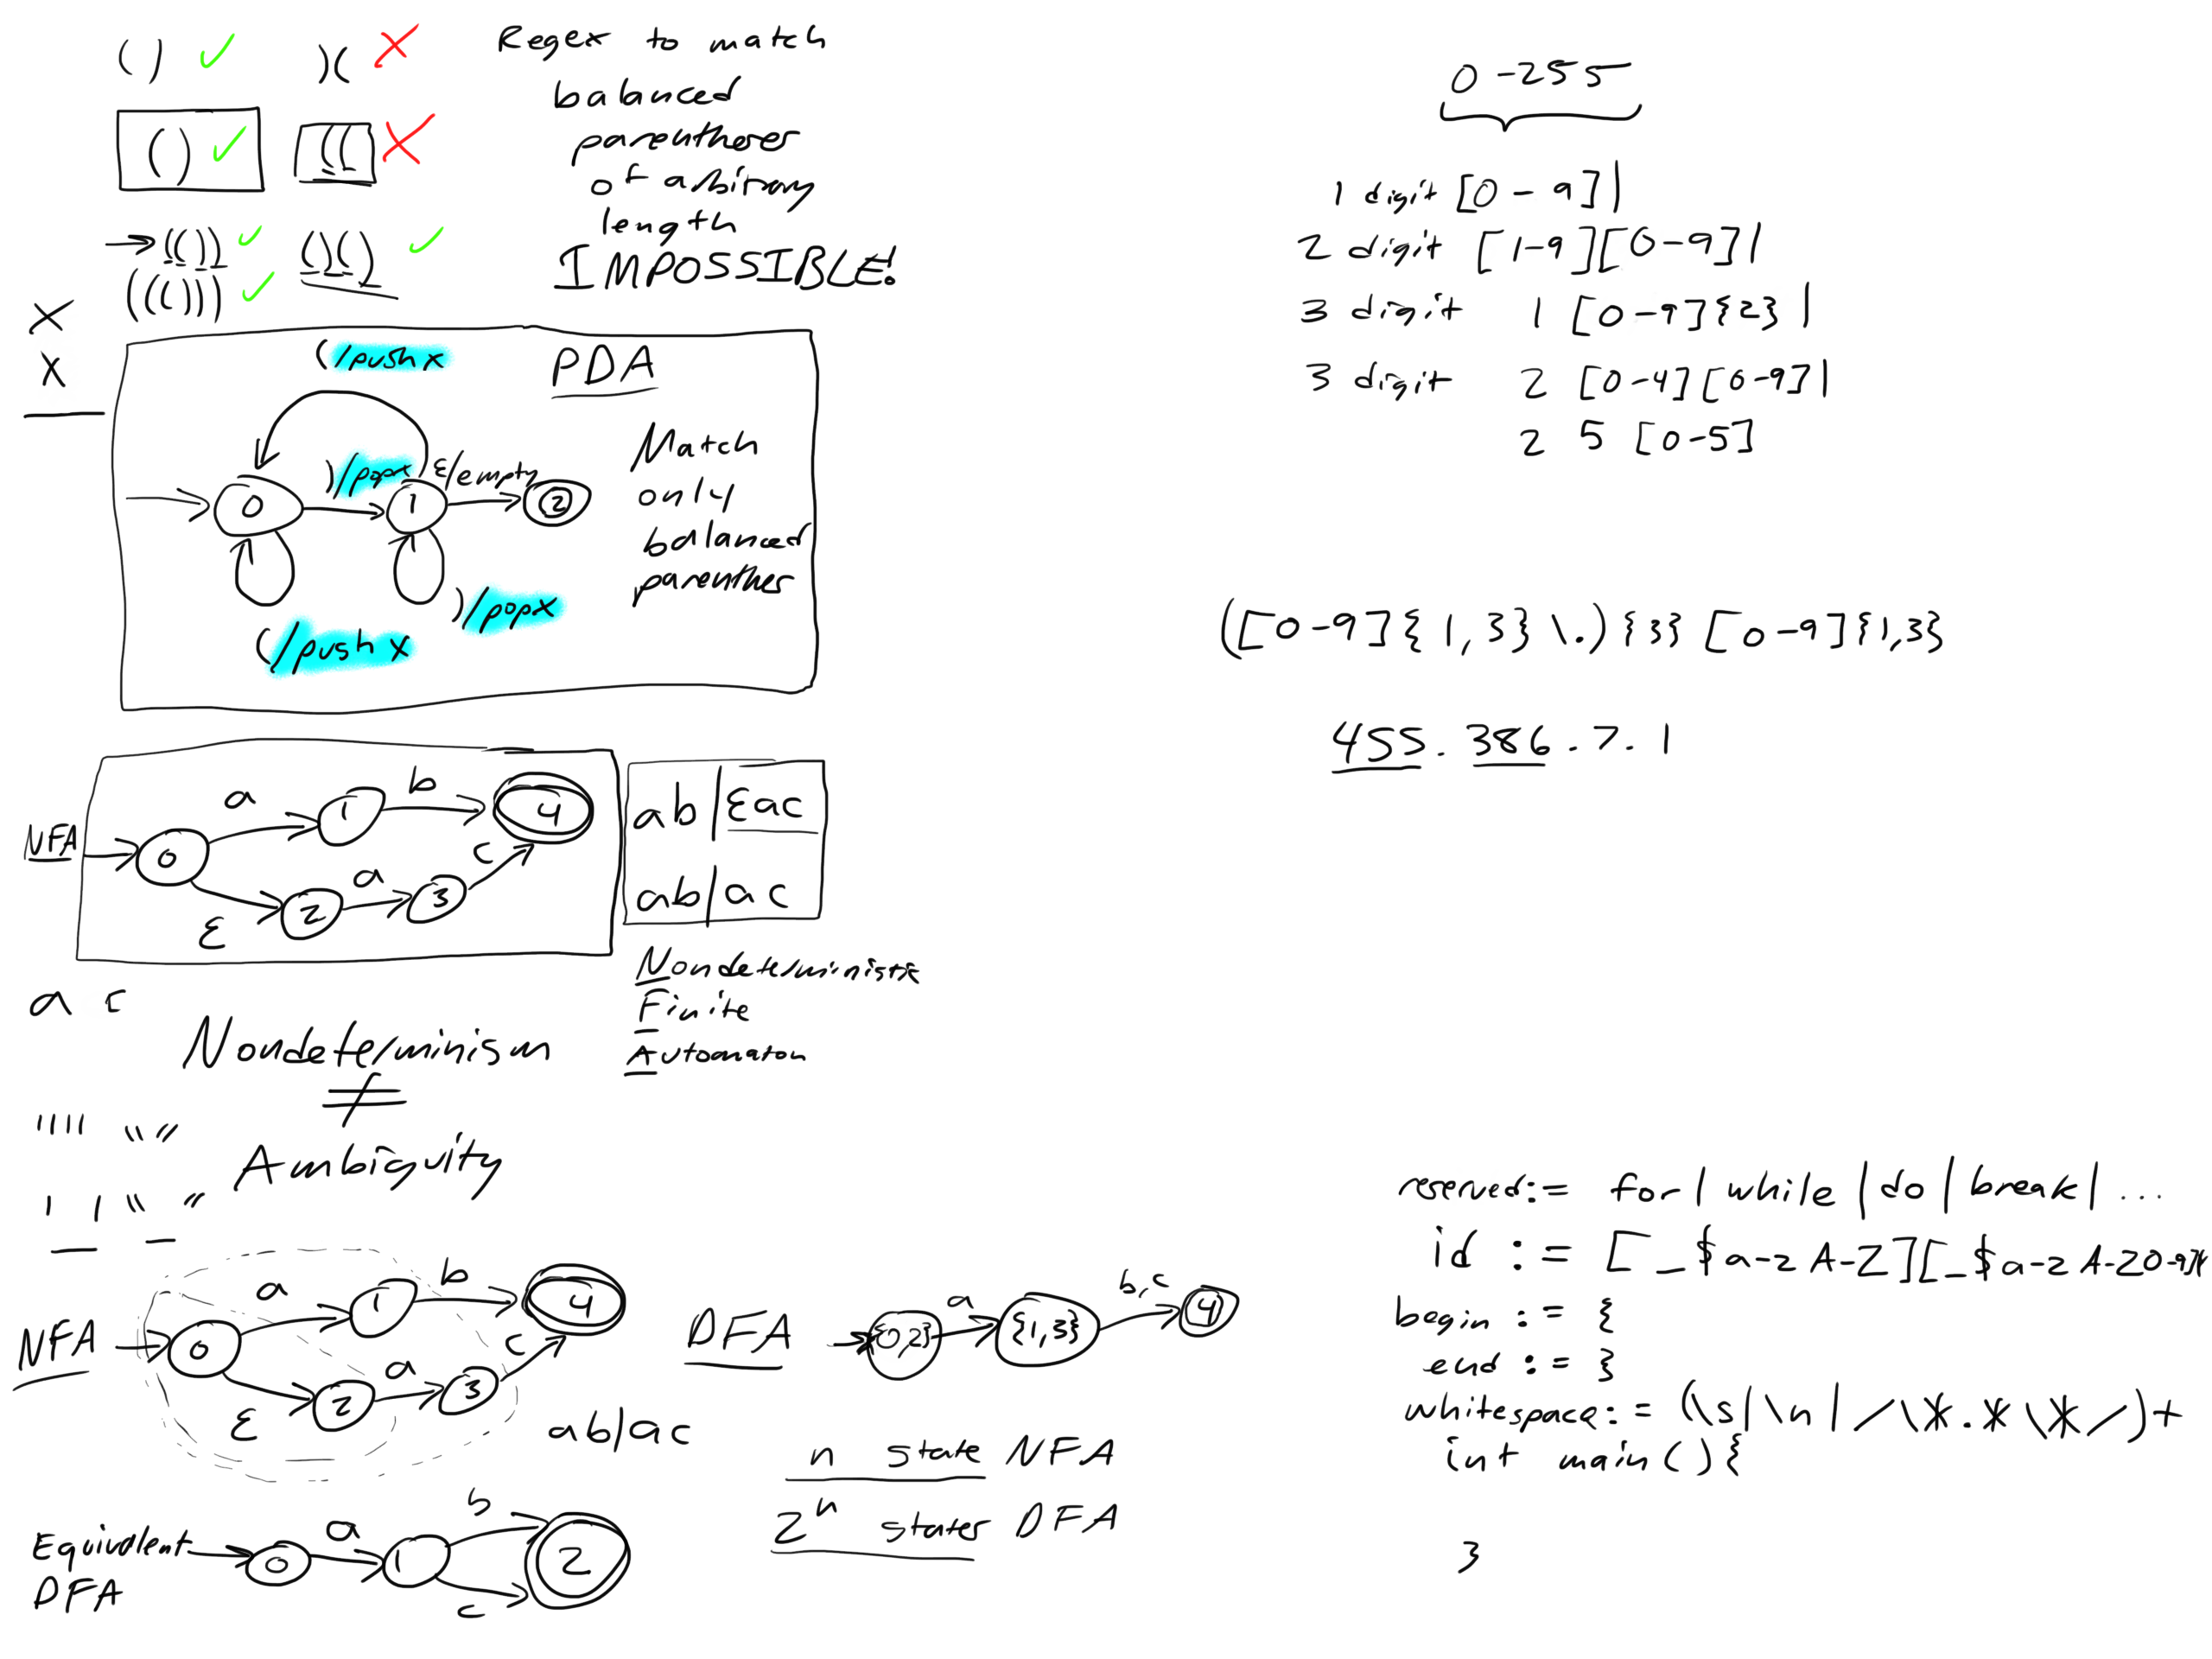 ( ) )(
Regex to match
balanced
parentheses
of arbitrary
length
IMPOSSIBLE!
( ) ((
(()) ()()
((()))
X
X
PDA
(/push x
)/pop x
ε/empty
0 1 2
)/pop x
(/push x
Match
only
balanced
parenthes
NFA
a b
0 1 4
ε a c
2 3
ab|εac
ab|ac
Nondeterministic
Finite
Automaton
a c
Nondeterminism
≠
Ambiguity
NFA
a b
0 1 4
ε a c
2 3
ab|ac
DFA
{0,2} a {1,3} b,c 4
n state NFA
2^n states DFA
Equivalent
DFA
0 a 1 b c 2
0-255
1 digit [0-9]|
2 digit [1-9][0-9]|
3 digit 1 [0-9]{2}|
3 digit 2 [0-4][0-9]|
2 5 [0-5]
([0-9]{1,3}\.){3}[0-9]{1,3}
455.386.7.1
reserved:= for|while|do|break|...
id := [_$a-zA-Z][_$a-zA-Z0-9]*
begin := {
end := }
whitespace:= (\s|\n|/\*.*\*/)+
int main(){
}